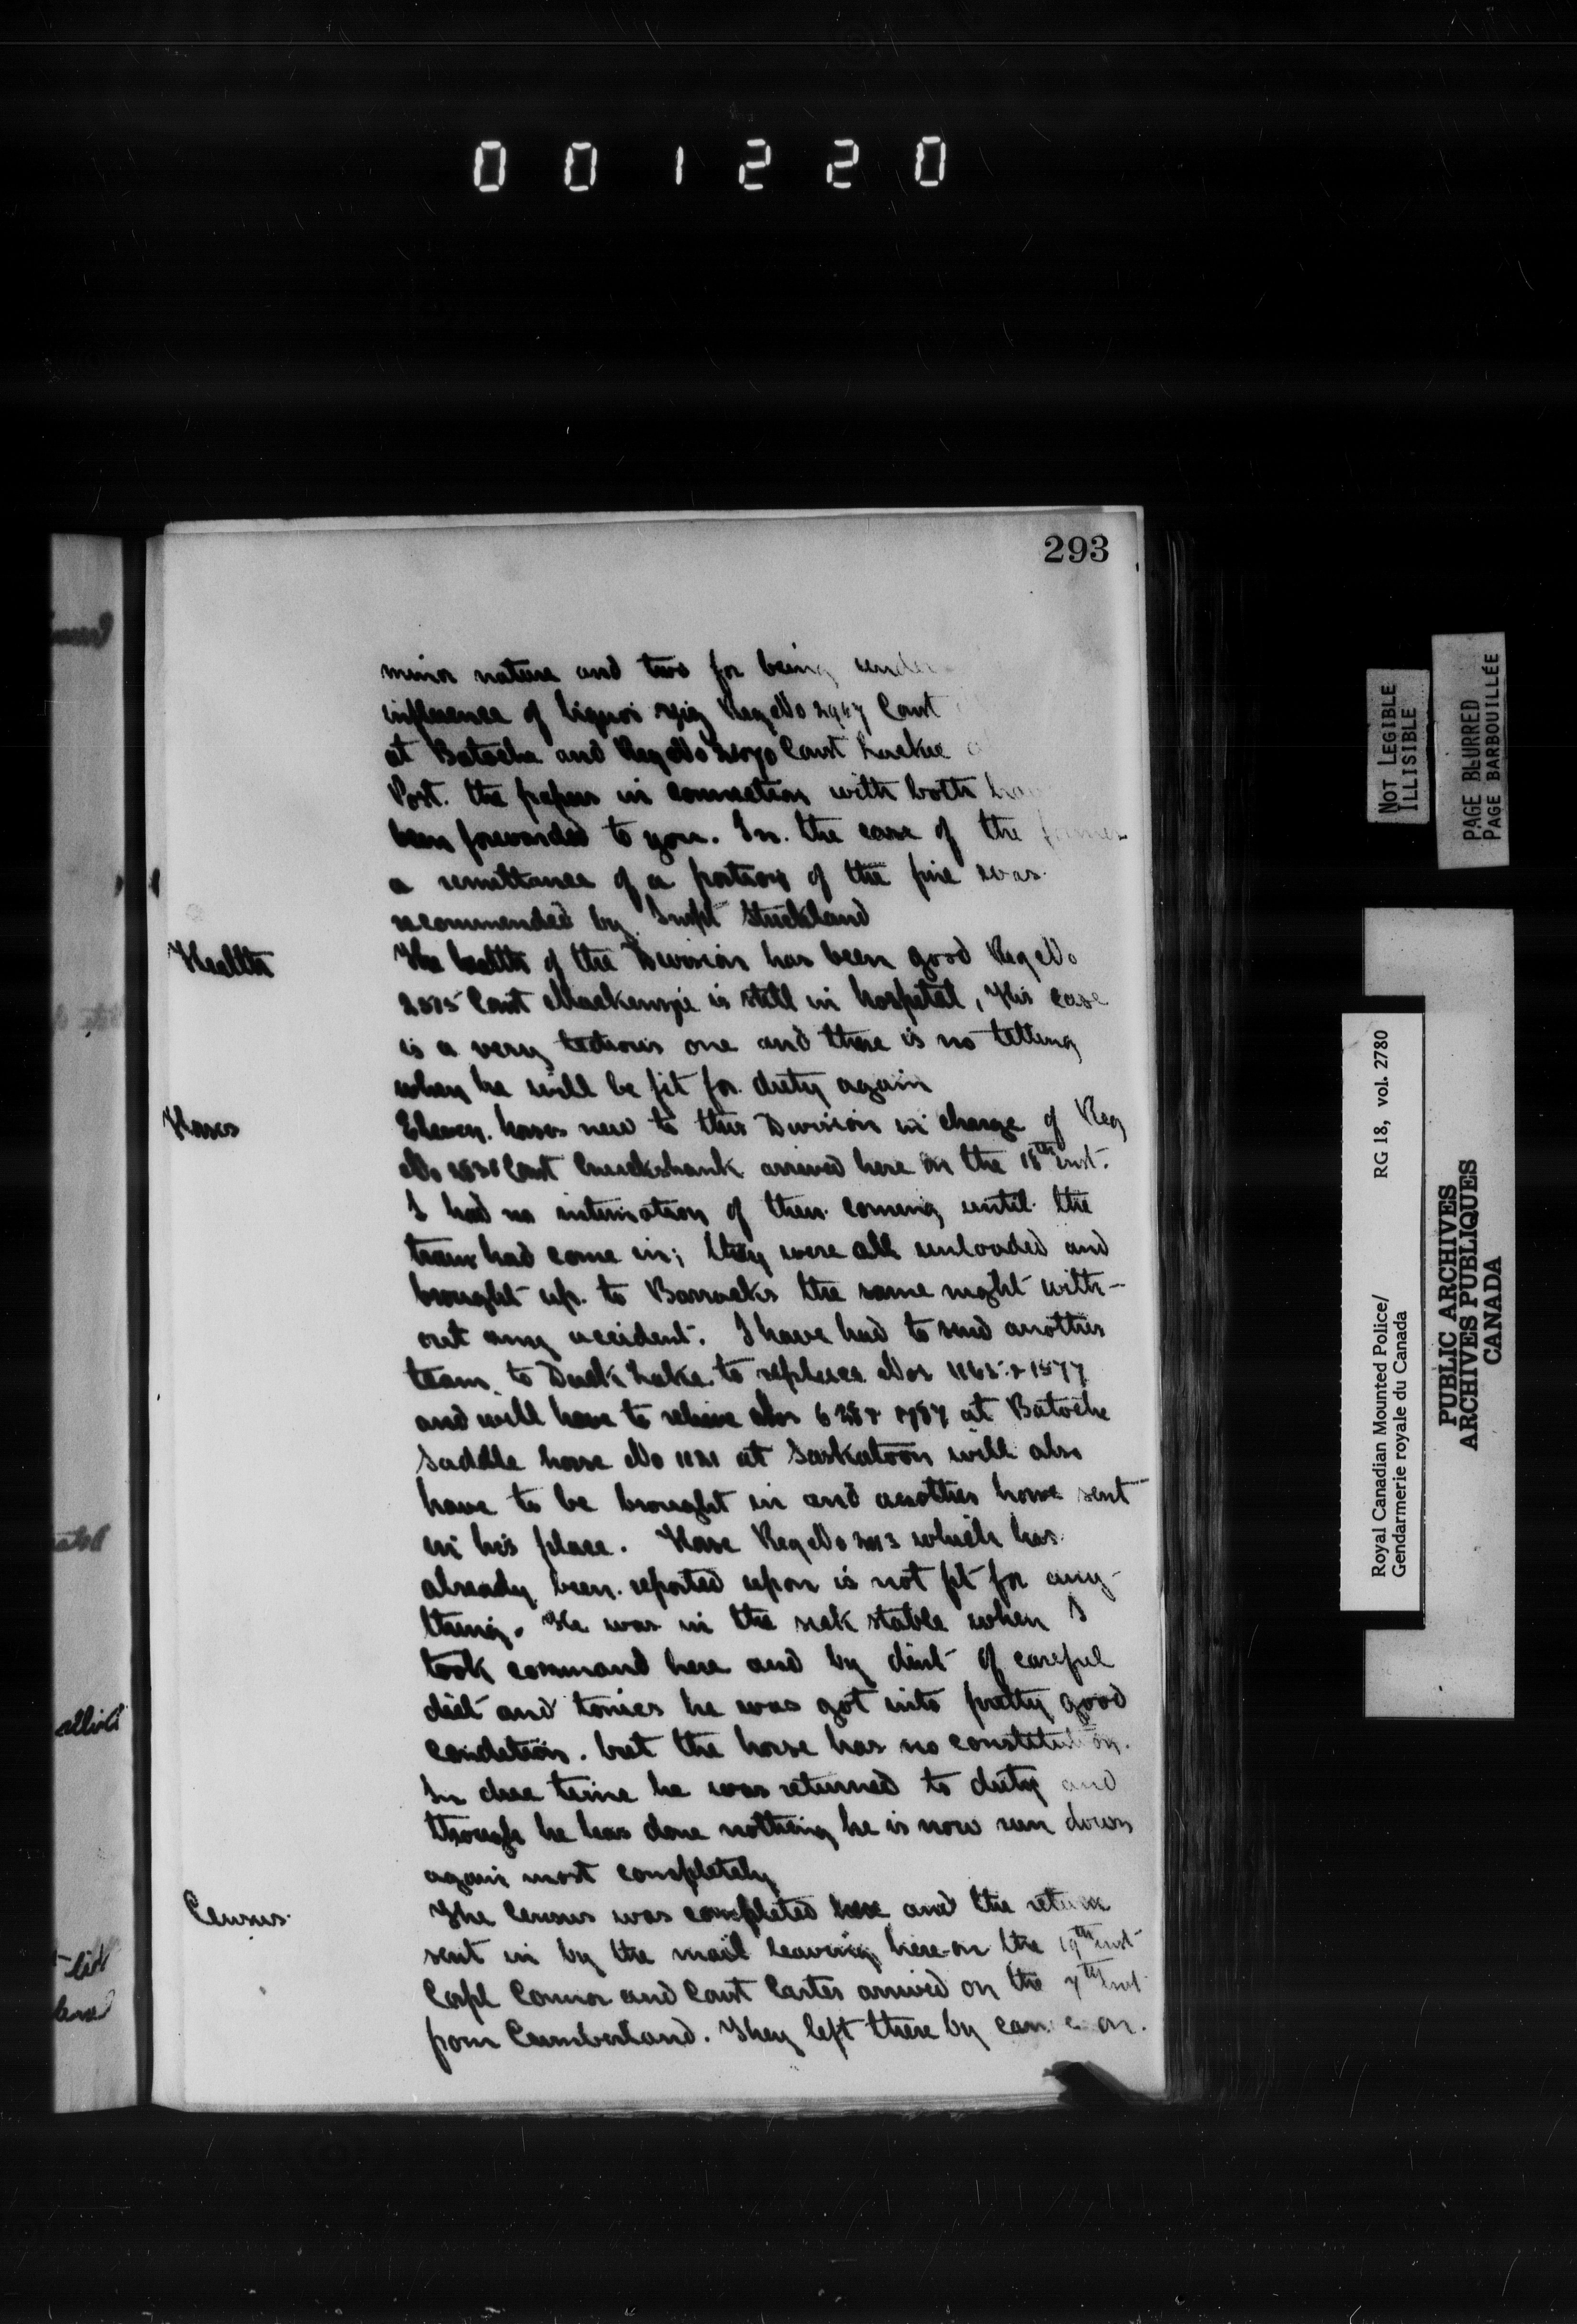 001220
293
minor nature and two for being under
influence of liquor viz Reg No Const
at Batoche and Reg No Const
Post. the papers in connection with both
been forwarded to you. In the case of the former
a remittance of a portion of the fine was
recommended by Supt Strickland
Health
The health of the Division has been good Reg No
Const Mackenzie is still in hospital, His case
is a very tedious one and there is no telling
when he will be fit for duty again
Horses
Eleven horses new to this Division in charge of Reg
No Const Cruickshank arrived here on the 18th inst.
I had no intimation of their coming until the
train had come in; they were all unloaded and
brought up to Barracks the same night with-
out any accident. I have had to send another
team to Duck Lake to replace Nos 1165 & 1577
and will have to relieve Nos at Batoche
Saddle horse No at Saskatoon will also
have to be brought in and another horse sent
in his place. Horse Reg No which has
already been reported upon is not fit for any-
thing. He was in the sick stable when I
took command here and by dint of careful
diet and tonics he was got into pretty good
condition. but the horse has no constitution.
In due time he was returned to duty and
though he has done nothing he is now run down
again most completely
Census.
The Census was completed here and the return
sent in by the mail leaving here on the 19th inst
Corpl Connor and Const Carter arrived on the 7th inst
from Cumberland. They left there by canoe on.
NOT LEGIBLE
ILLISIBLE
PAGE BLURRED
PAGE BARBOUILLÉE
Royal Canadian Mounted Police/ RG 18, vol. 2780
Gendarmerie royale du Canada
PUBLIC ARCHIVES
ARCHIVES PUBLIQUES
CANADA